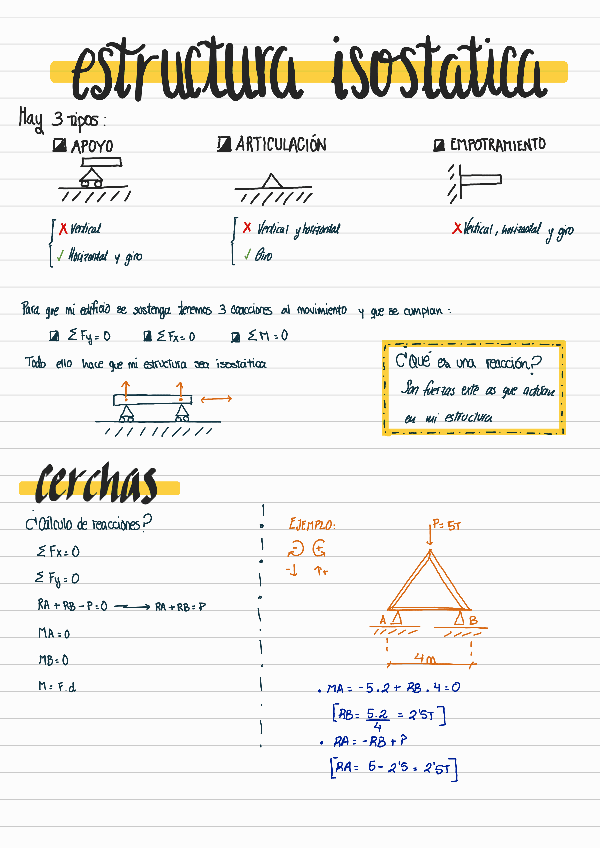 estructura isostatica
Hay 3 tipos:
APOYO
ARTICULACIÓN
EMPOTRAMIENTO
✗ Vertical
✓ Horizontal y giro
✗ Vertical y horizontal
✓ Giro
✗ Vertical, horizontal y giro
Para que mi edificio se sostenga tenemos 3 coacciones al movimiento y que se cumplan:
ΣFy=0 ΣFx=0 ΣM=0
Todo ello hace que mi estructura sea isostática
¿Qué es una reacción?
Son fuerzas as que actúan
en mi estructura
cerchas
¿Cálculo de reacciones?
ΣFx=0
ΣFy=0
RA+RB-P=0 → RA+RB=P
MA=0
MB=0
M=F.d
EJEMPLO:
- +
-↓ ↑+
P=5T
A B
4m
• MA=-5.2+RB.4=0
[RB=5.2/4=2'5T]
• RA=-RB+P
[RA=5-2'5=2'5T]